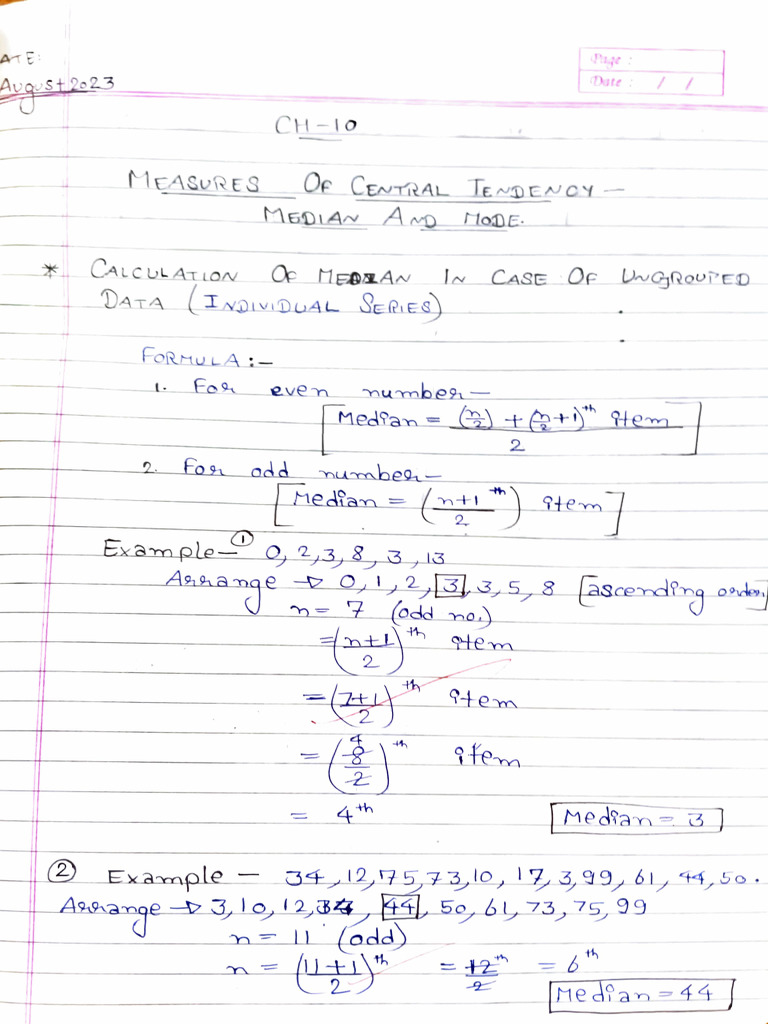 ATE:
August 2023
Page :
Date : / /
CH-10
MEASURES OF CENTRAL TENDENCY —
MEDIAN AND MODE.
* CALCULATION OF MEDIAN IN CASE OF UNGROUPED
DATA (INDIVIDUAL SERIES)
FORMULA :-
1. For even number —
[Median = ((n/2) + (n/2 + 1)th item) / 2]
2. For odd number —
[Median = (n+1 th / 2) item]
Example — ① 0, 2, 3, 8, 3, 13
Arrange → 0, 1, 2, 3, 3, 5, 8 [ascending order]
n = 7 (odd no.)
= (n+1 / 2)th item
= (7+1 / 2)th item
= (8 / 2)th item 4
= 4th
Median = 3
② Example — 34, 12, 75, 73, 10, 17, 3, 99, 61, 44, 50.
Arrange → 3, 10, 12, 34, 44, 50, 61, 73, 75, 99
n = 11 (odd)
n = (11+1 / 2)th = 12th / 2 = 6th
Median = 44